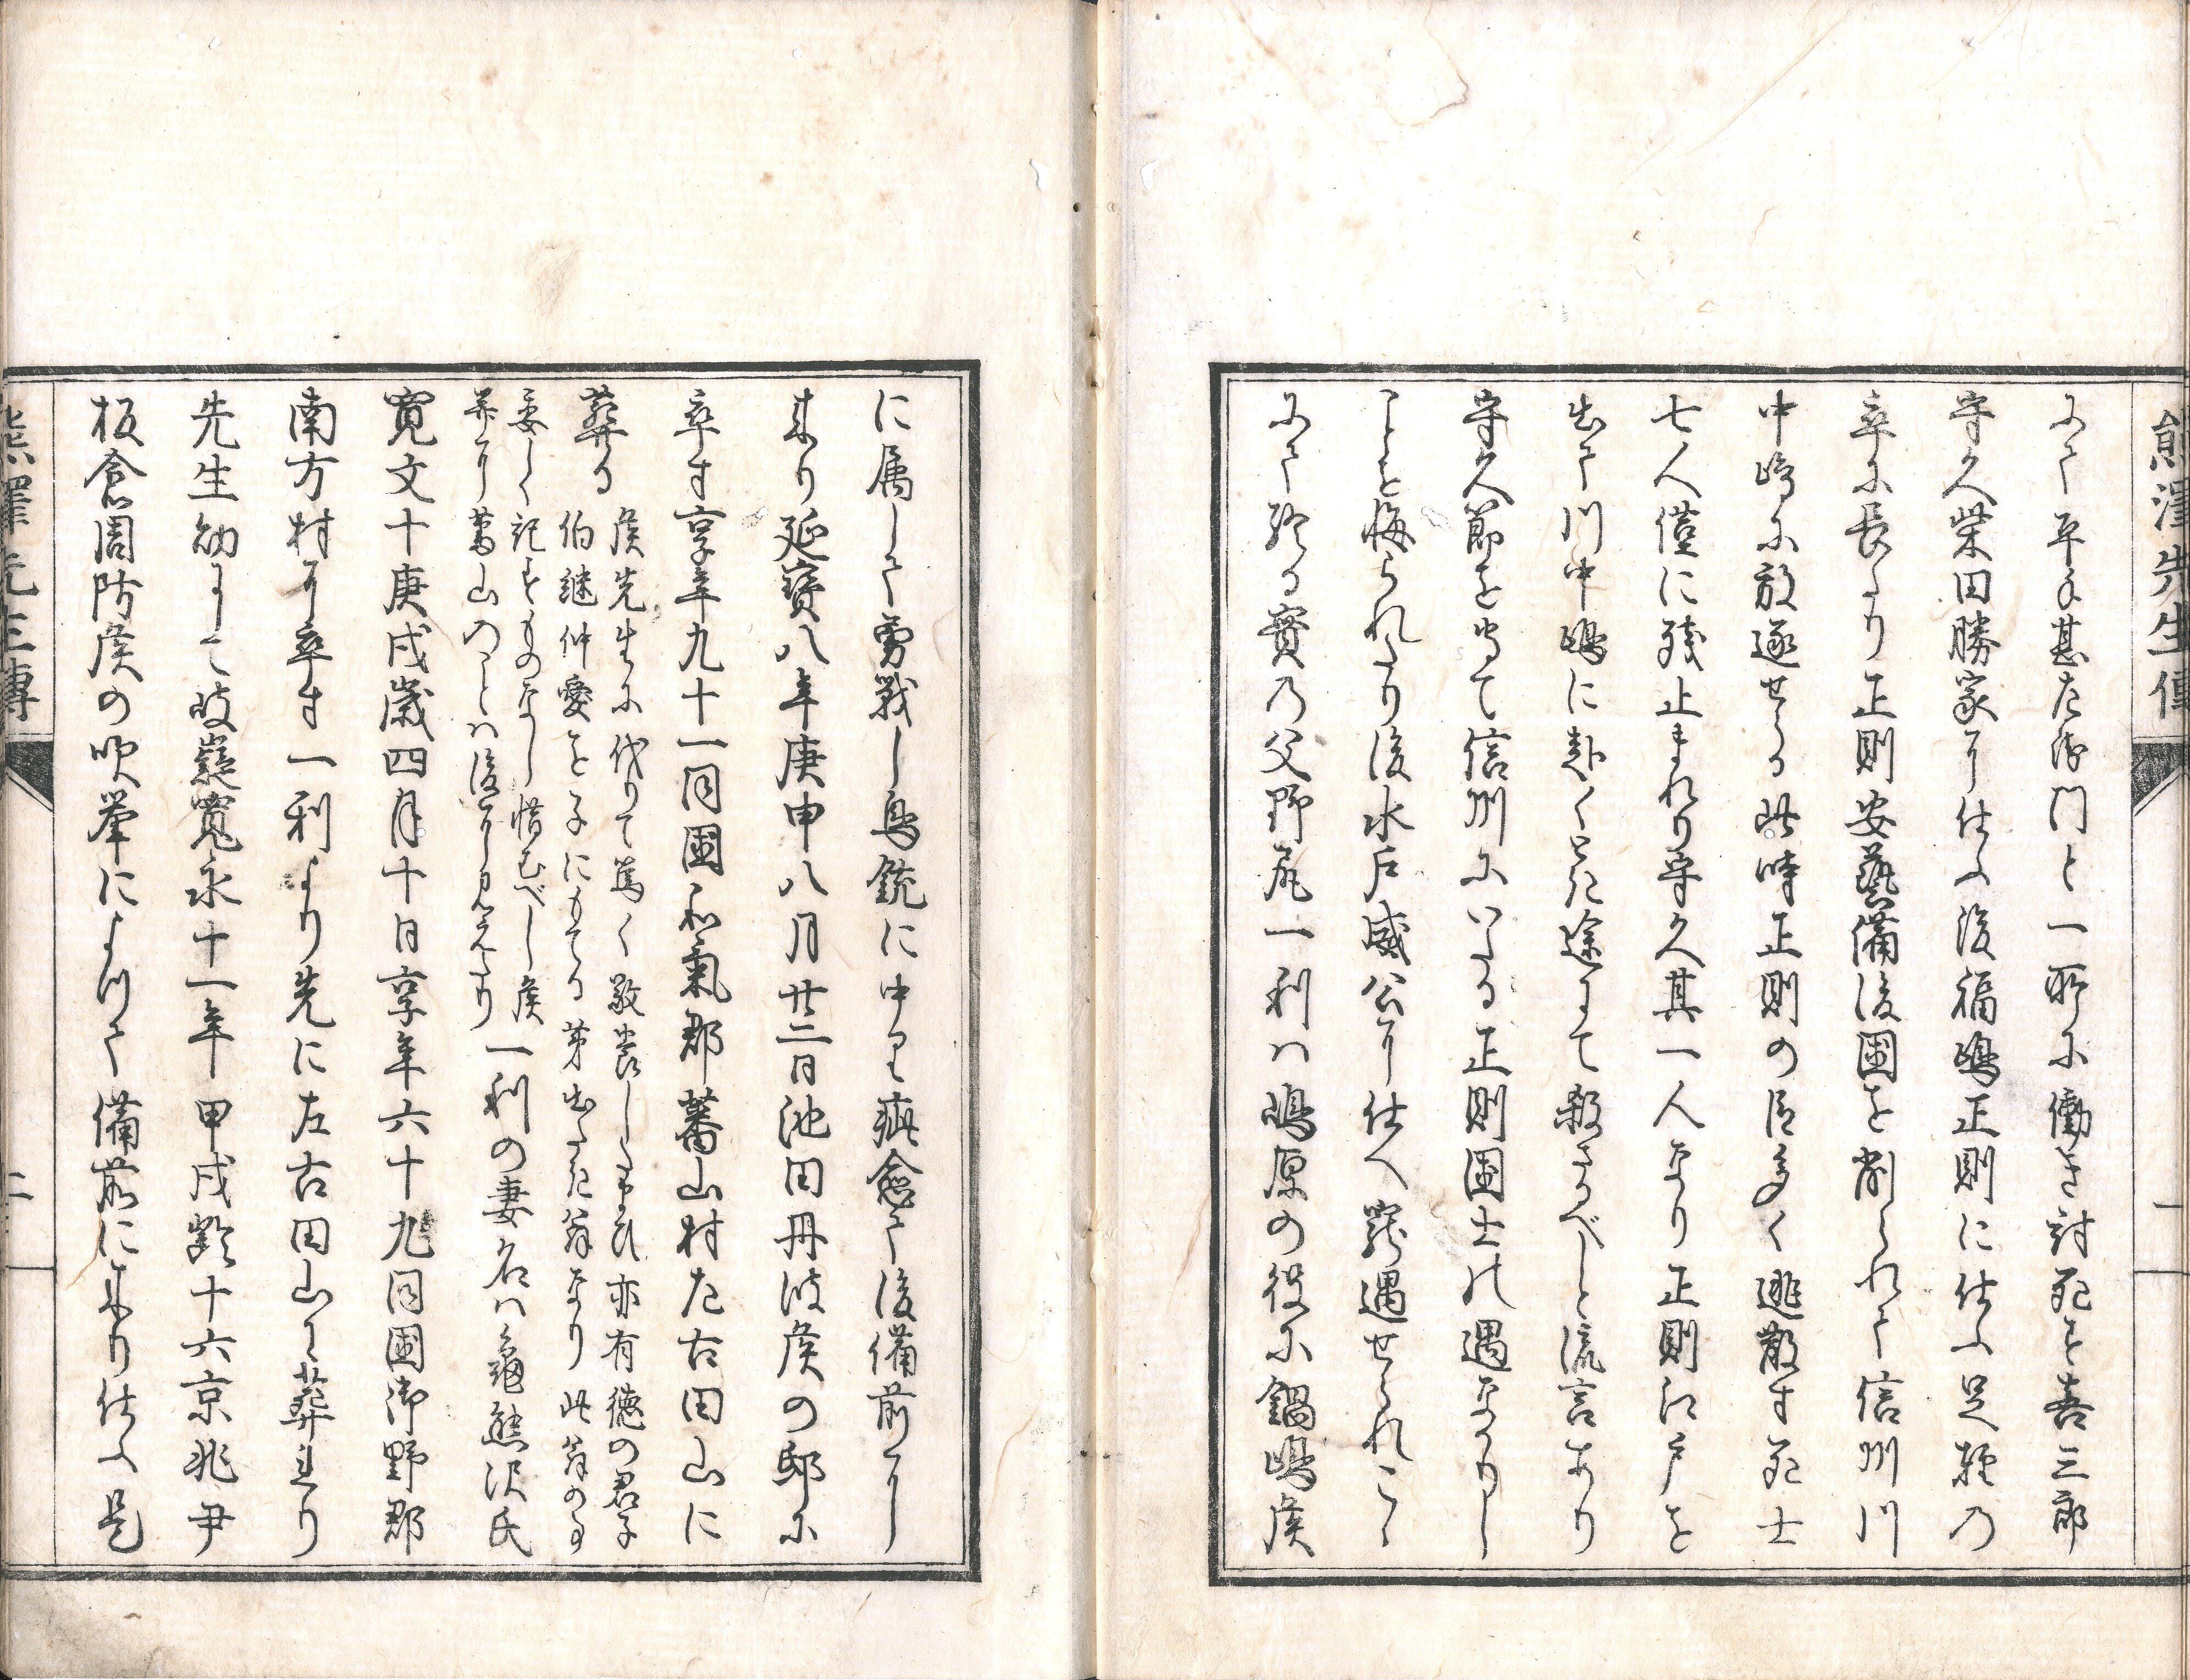 熊澤先生傳
一
にて平手甚左衛門と一所に働き討死す喜三郎
守久柴田勝家に仕ふ後福嶋正則に仕ふ足軽の
卒に長たり正則安藝備後國を削られて信州川
中嶋に放逐せらる此時正則の臣多く逃散す死士
七人僅に残止まれり守久其一人なり正則江戸を
出て川中嶋に赴くとき途にて殺さるべしと流言あり
守久節を守て信州にいたる正則國士の遇なかりし
ことを悔られたり後水戸威公に仕へ寵遇せられこゝ
にて終る實の父野尻一利ハ嶋原の役に鍋嶋侯
に属して勇戦し鳥銃に中り疵愈て後備前に
来り延寶八年庚申八月廿二日池田丹波侯の邸に
卒す享年九十一同國和氣郡蕃山村左古田山に
葬る
侯先生に代りて篤く敬養したまひ亦有徳の君子
伯継仲愛を子にもてる芽出たき翁なり此翁の事
委しく記せしものなし惜むべし侯
并に蕃山のことハ後に見えたり
一利の妻名ハ亀熊沢氏
寛文十庚戌歳四月十日享年六十九同國御野郡
南方村に卒す一利より先に左古田山に葬れり
先生幼にして岐嶷寛永十一年甲戌齡十六京兆尹
板倉周防侯の吹挙によつて備前に来り仕ふ是
熊澤先生傳
二